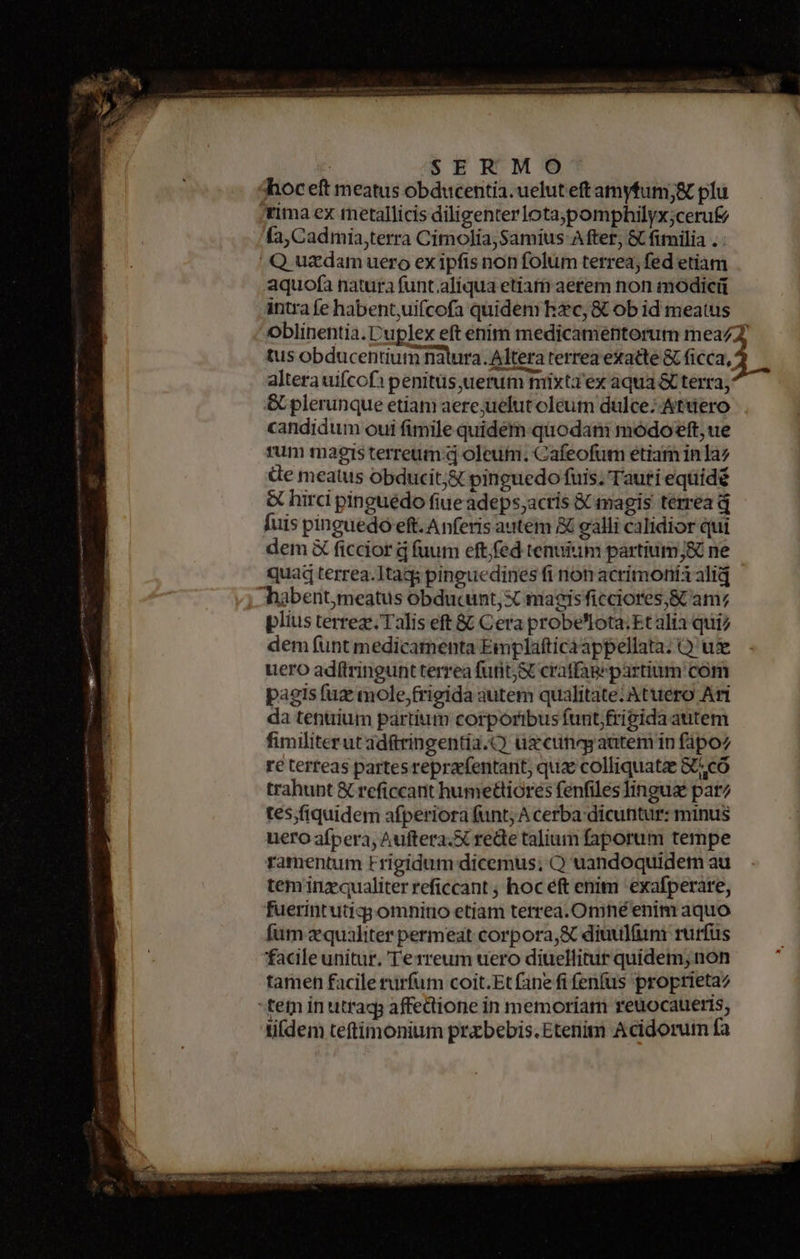 SERMO
hoc eſt meatus obducentia. uelut eſt amyſum, & plu
rima ex metallicis diligenter lota, pompholyx, ceruſ⸗
ſa, Cadmia, terra Cimolia, Samius Aſter, & ſimilia.
Quædam uero ex ipſis non ſolum terrea, ſed etiam
aquoſa natura ſunt. aliqua etiam aerem non modicū
intra ſe habent, uiſcoſa quidem hæc, & ob id meatus
oblinentia. Duplex eſt enim medicamentorum mea⸗
tus obducentium natura. Altera terrea exacte & ſicca,
altera uiſcoſa penitus, uerum mixta ex aqua & terra,
& plerunque etiam aere, uelut oleum dulce. At uero
candidum oui ſimile quidem quodam modo eſt, ue
rum magis terreum ꝗ̃ oleum. Caſeoſum etiam in la⸗
cte meatus obducit, & pinguedo ſuis. Tauri equidẽ
& hirci pinguedo ſiue adeps, acris & magis terrea ꝗ̃
ſuis pinguedo eſt. Anſeris autem & galli calidior qui
dem & ſiccior ꝗ̃ ſuum eſt, ſed tenuium partium, & ne
quaꝗ̃ terrea. Itaqꝫ pinguedines ſi non acrimoniā aliꝗ̃
habent, meatus obducunt, & magis ſicciores, & am⸗
plius terreæ. Talis eſt & Cera probe lota. Et alia qui⸗
dem ſunt medicamenta Emplaſtica appellata. Quæ
uero adſtringunt terrea ſunt, & craſſarum partium com
pagis ſuæ mole, frigida autem qualitate. At uero Ari
da tenuium partium corporibus ſunt, frigida autem
ſimiliter ut adſtringentia. Quæcunqꝫ autem in ſapo⸗
re terreas partes repræſentant, quæ colliquatæ &, cō
trahunt & reſiccant humectiores ſenſiles linguæ par⸗
tes, ſiquidem aſperiora ſunt, Acerba dicuntur: minus
uero aſpera, Auſtera. & recte talium ſaporum tempe
ramentum Frigidum dicemus. Quandoquidem au
tem inæqualiter reſiccant, hoc eſt enim exaſperare,
fuerint utiqꝫ omnino etiam terrea. Omne enim aquo
ſum æqualiter permeat corpora, & diuulſum rurſus
facile unitur. Terreum uero diuellitur quidem, non
tamen facile rurſum coit. Et ſane ſi ſenſus proprieta⸗
tem in utraqꝫ affectione in memoriam reuocaueris,
iiſdem teſtimonium præbebis. Etenim Acidorum ſa